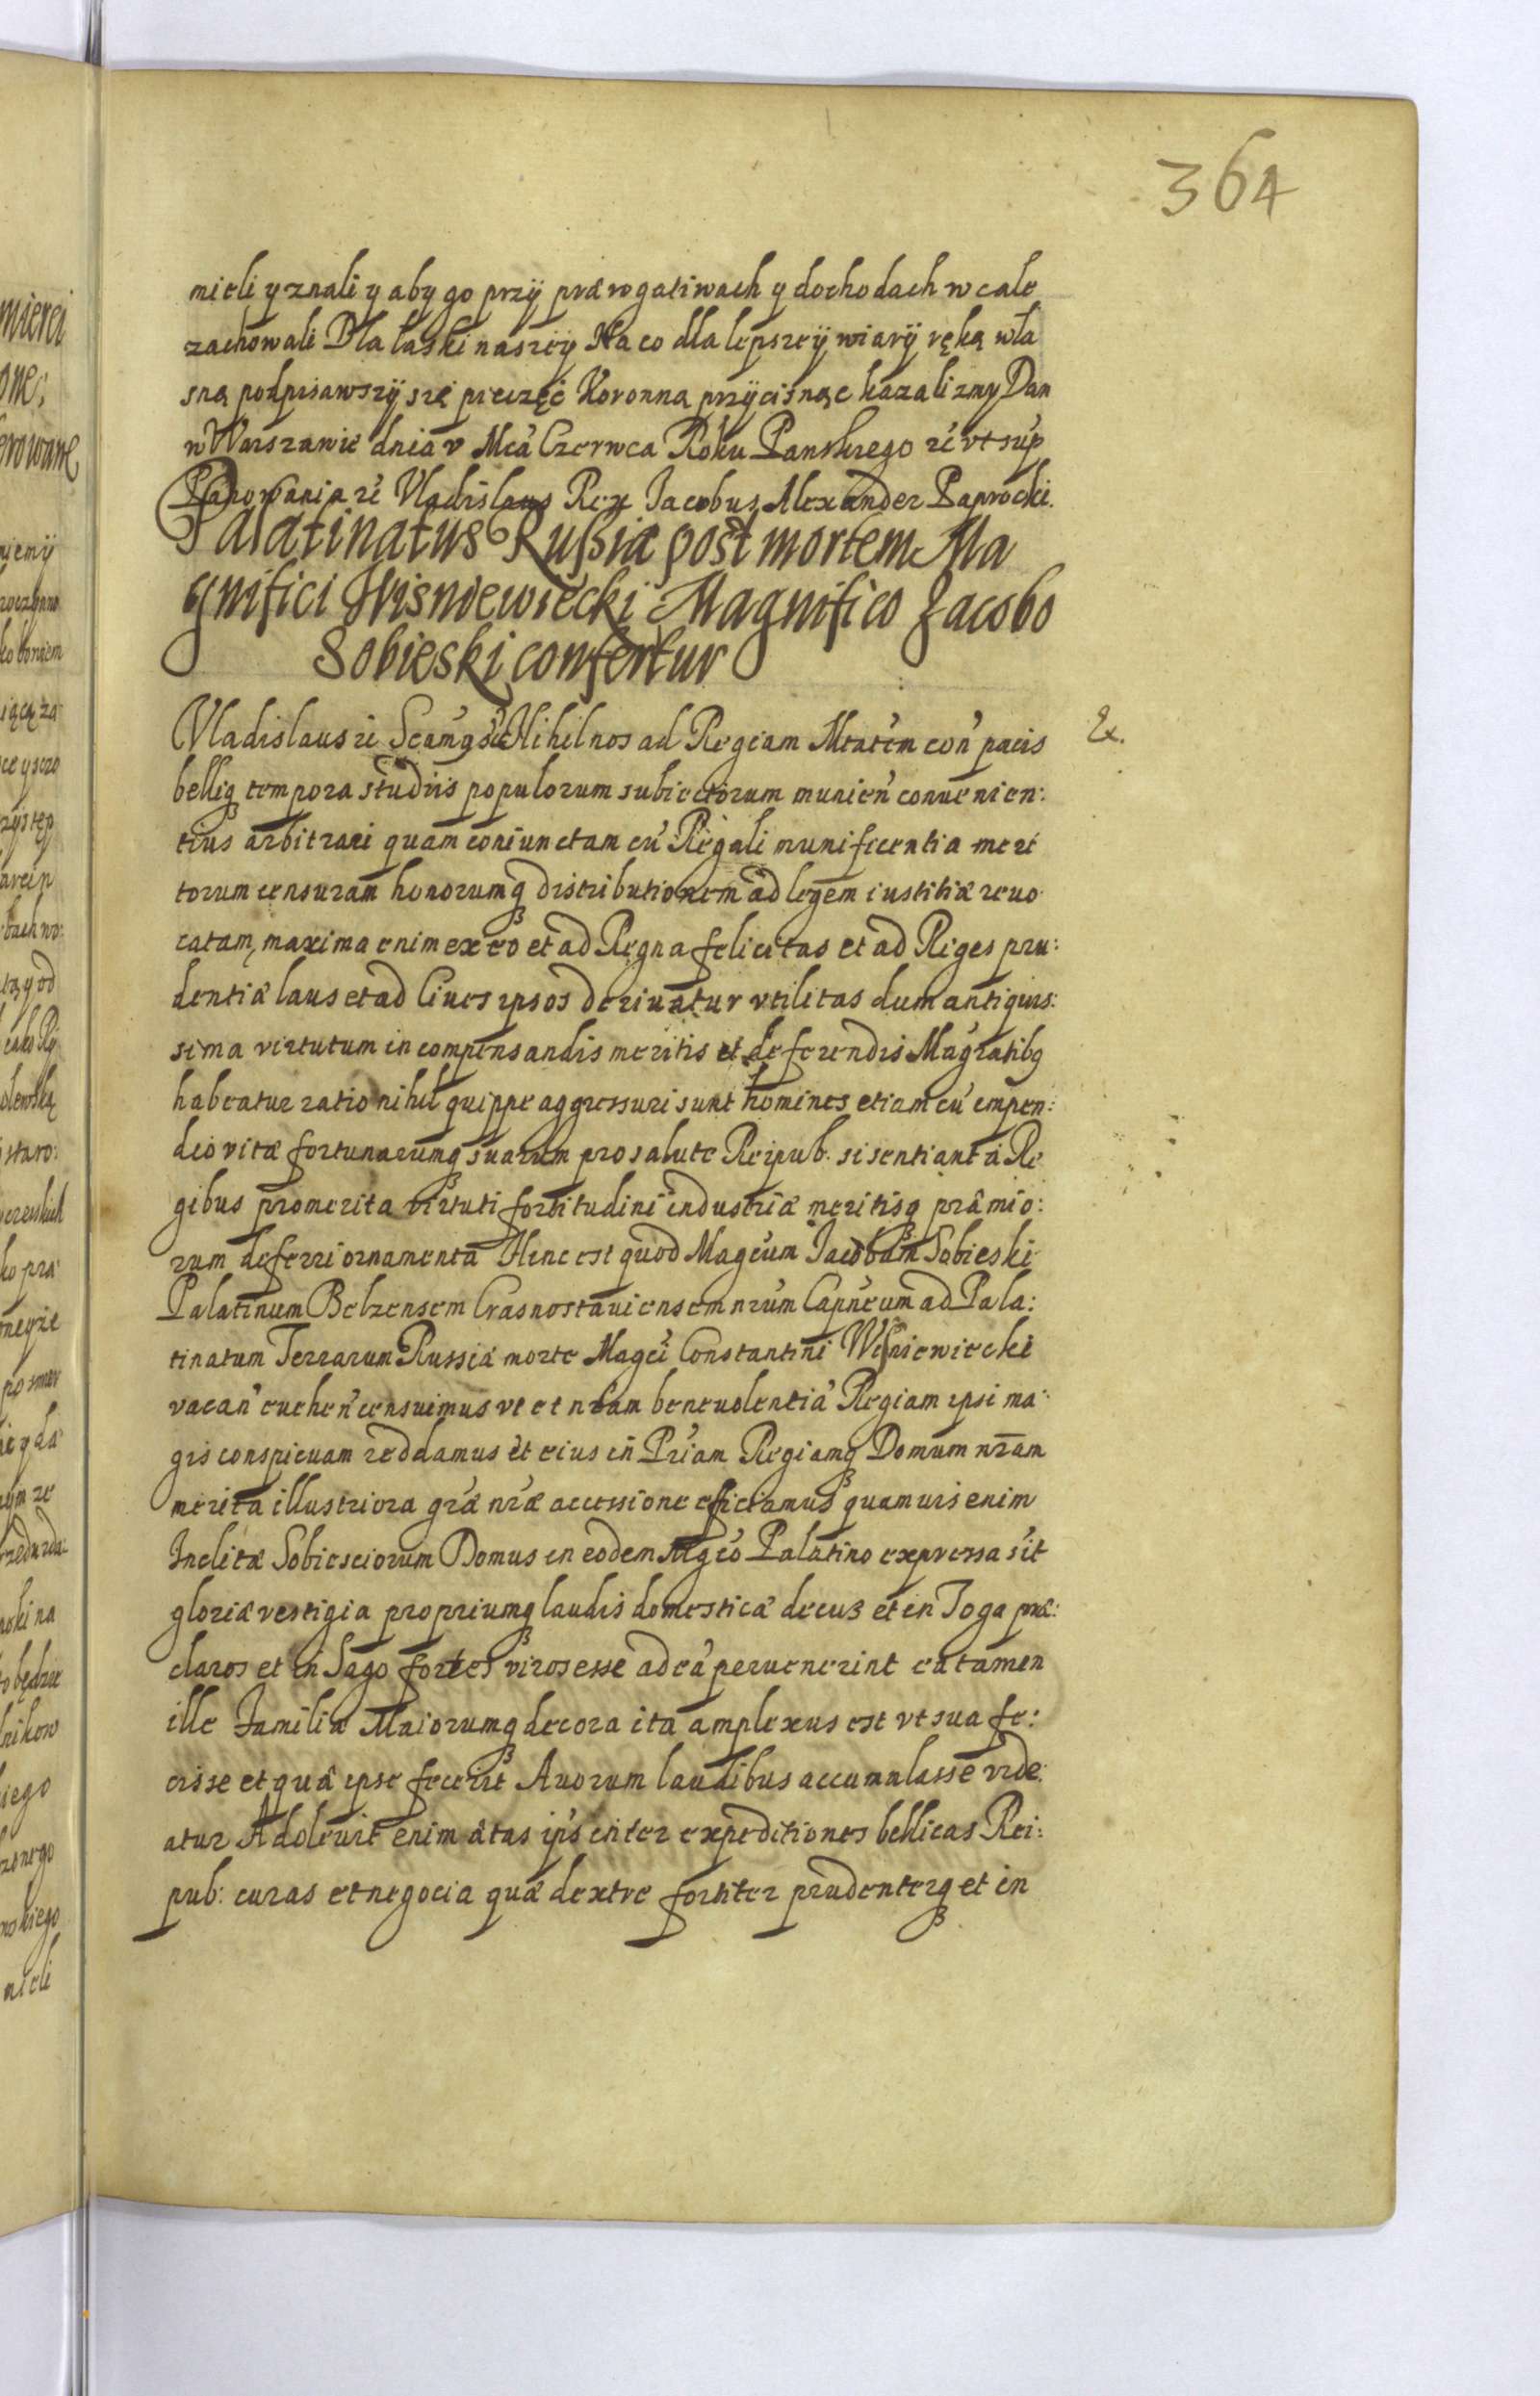 364
mieli y znali y aby go przÿ prærogatiwach y dochodach w cale
zachowali Dla łaski naszeÿ Na co dla lepszeÿ wiarÿ ręką wła
sną podpisawszÿ się pieczęć Koronną przÿcisnąc kazalizmy Dan
w Warszawie dnia v Mca Czerwca Roku Panskiego rc vt sup
Panowania rc Vladislaus Rex Jacobus Alexander Paprocki.
Palatinatus Russiæ post mortem Ma
gnifici Wisniewiecki Magnifico Jacobo
Sobieski confertur
Vladislaus rc Scamqs rc Nihil nos ad Regiam Mtatem con pacis
Ex.
belliq tempora studiis populorum subiectorum munien conuenien:
tius arbitrari quam coniunctam cu Regali munificentia meri
torum censuram honorumq distributionem ad legem iustitiæ reuo
catam, maxima enim ex eo et ad Regna felicitas et ad Reges pru:
dentiæ laus et ad Ciues ipsos deriuatur vtilitas dum antiquis:
sima virtutum in compensandis meritis et deferendis Magratibq
habeatur ratio nihil quippe aggressuri sunt homines etiam cu impen:
dio vitæ fortunarumq suarum pro salute Reipub. si sentiant a Re
gibus promerita virtuti fortitudini industriæ meritisq præmio:
rum deferri ornamenta Hinc est quod Mageum Jacobum Sobieski
Palatinum Belzensem Crasnostauiensem nrum Capneum ad Pala:
tinatum Terrarum Russiæ morte Magci Constantini Wisniewiecki
vacan euehen censuimus vt et nram beneuolentia Regiam ipsi ma:
gis conspicuam reddamus et eius in Priam Regiamq Domum nram
merita illustriora gra nræ accessione efficiamus quamuis enim
Inclitæ Sobiesciorum Domus in eodem Mgco Palatino expressa sit
gloriæ vestigia propriumq laudis domesticæ decus et in Toga præ:
claros et in Sago fortes viros esse ad ea peruenerint ea tamen
ille Familiæ Maiorumq decora ita amplexus est vt sua fe:
cisse et quæ ipse fecerit Auorum laudibus accumulasse vide:
atur Adoleuit enim ætas ips inter expeditiones bellicas Rei:
pub: curas et negocia quæ dextre fortiter prudenterq et in